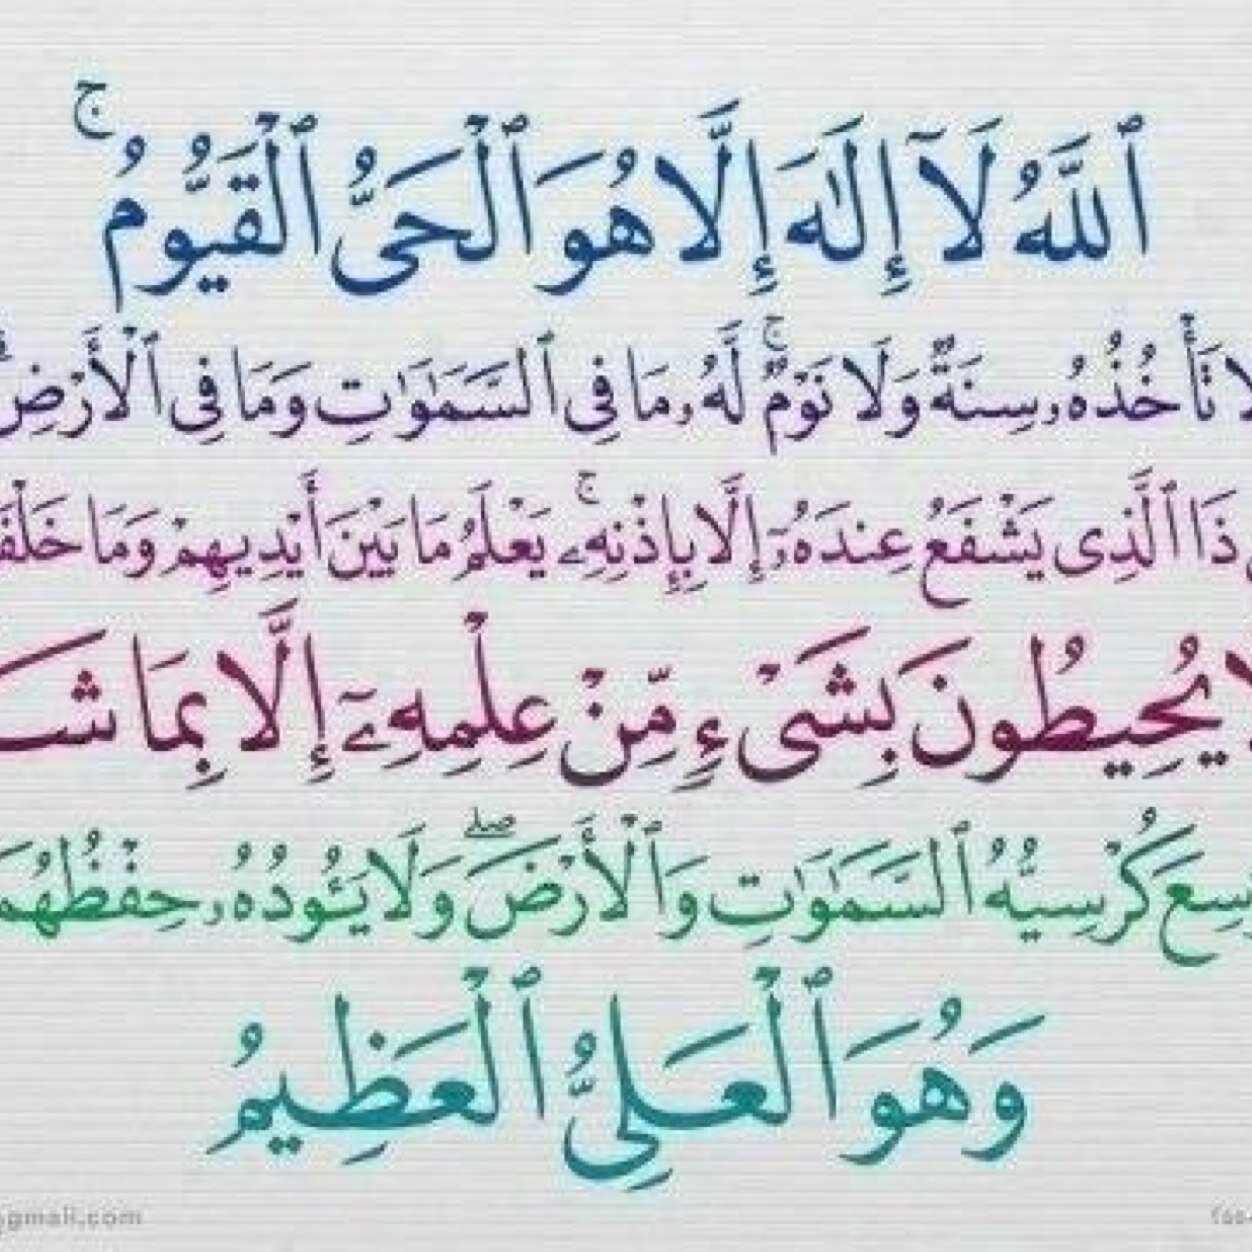 ٱللَّهُ لَآ إِلَٰهَ إِلَّا هُوَ ٱلْحَىُّ ٱلْقَيُّومُ ۚ
لَا تَأْخُذُهُۥ سِنَةٌ وَلَا نَوْمٌ ۚ لَّهُۥ مَا فِى ٱلسَّمَٰوَٰتِ وَمَا فِى ٱلْأَرْضِ
ذَا ٱلَّذِى يَشْفَعُ عِندَهُۥٓ إِلَّا بِإِذْنِهِۦ ۚ يَعْلَمُ مَا بَيْنَ أَيْدِيهِمْ وَمَا خَلْفَ
لَا يُحِيطُونَ بِشَىْءٍ مِّنْ عِلْمِهِۦٓ إِلَّا بِمَا شَـ
سِعَ كُرْسِيُّهُ ٱلسَّمَٰوَٰتِ وَٱلْأَرْضَ ۖ وَلَا يَـُٔودُهُۥ حِفْظُهُمَ
وَهُوَ ٱلْعَلِىُّ ٱلْعَظِيمُ
gmail.com